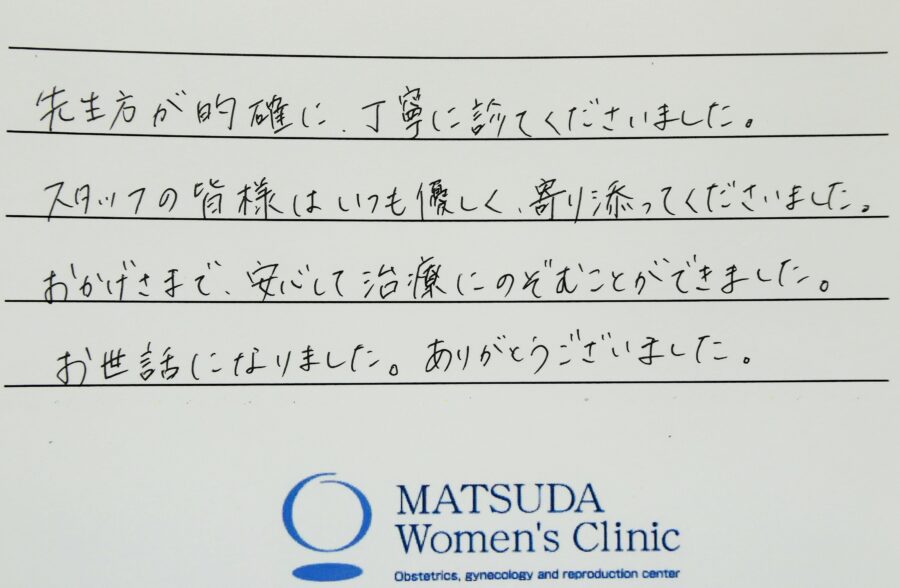 先生方が的確に、丁寧に診てくださいました。
スタッフの皆様はいつも優しく、寄り添ってくださいました。
おかげさまで、安心して治療にのぞむことができました。
お世話になりました。ありがとうございました。
MATSUDA
Women's Clinic
Obstetrics, gynecology and reproduction center